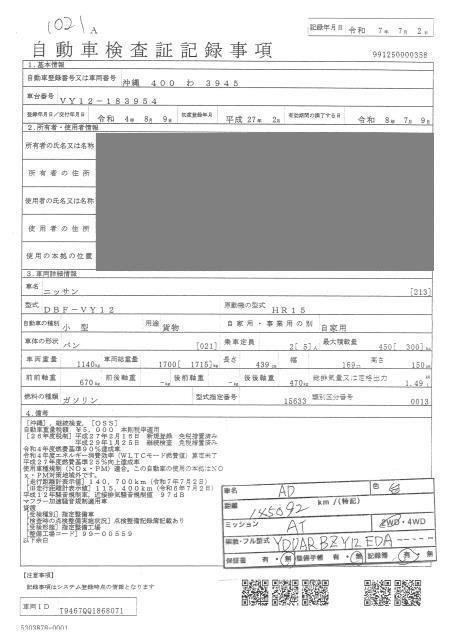 1021 A
記録年月日 令和 7年 7月 2日
自動車検査証記録事項
991250000358
1.基本情報
自動車登録番号又は車両番号 沖縄 400 わ 3945
車台番号 VY12-183954
登録年月日/交付年月日 令和 4年 8月 9日 初度登録年月 平成 27年 2月 有効期間の満了する日 令和 8年 7月 9日
2.所有者・使用者情報
所有者の氏名又は名称
所有者の住所
使用者の氏名又は名称
使用者の住所
使用の本拠の位置
3.車両詳細情報
車名 ニッサン [213]
型式 DBF-VY12 原動機の型式 HR15
自動車の種別 小型 用途 貨物 自家用・事業用の別 自家用
車体の形状 バン [021] 乗車定員 2[ 5]人 最大積載量 450[ 300]kg
車両重量 1140kg 車両総重量 1700[ 1715]kg 長さ 439cm 幅 169cm 高さ 150cm
前前軸重 670kg 前後軸重 -kg 後前軸重 -kg 後後軸重 470kg 総排気量又は定格出力 1.49L
燃料の種類 ガソリン 型式指定番号 15633 類別区分番号 0013
4.備考
[沖縄],継続検査,[OSS]
自動車重量税額 ¥5,000 本則税率適用
平成27年2月16日 新規登録 免税措置済み
平成29年1月25日 継続検査 免税措置済み
令和4年度燃費基準90%達成車
令和4年度エネルギー消費効率(WLTCモード燃費値)算定未了
平成27年度燃費基準25%向上達成車
使用車種規制(NOx・PM)適合。この自動車の使用の本拠はNO
x・PM対策地域外です。
[走行距離計表示値] 140,700km (令和7年7月2日)
[旧走行距離計表示値] 115,400km (令和6年7月2日)
平成12年騒音規制車、近接排気騒音規制値 97dB
マフラー加速騒音規制適用車
貨渡
[受検種別] 指定整備車
[検査時の点検整備実施状況] 点検整備記録簿記載あり
[受検形態] 指定整備工場
[整備工場コード] 99-00559
以下余白
車名 AD 色 白
距離 145092 km/(特記)
ミッション AT 2WD・4WD
架装・フル型式 VDUARBZY12EDA----
保証書 有・無 整備手帳 有・無 記録簿 有・無
[注意事項]
検査情報はシステム登録時点の情報となります
車両ID T9467QQ1868071
5303878-0001